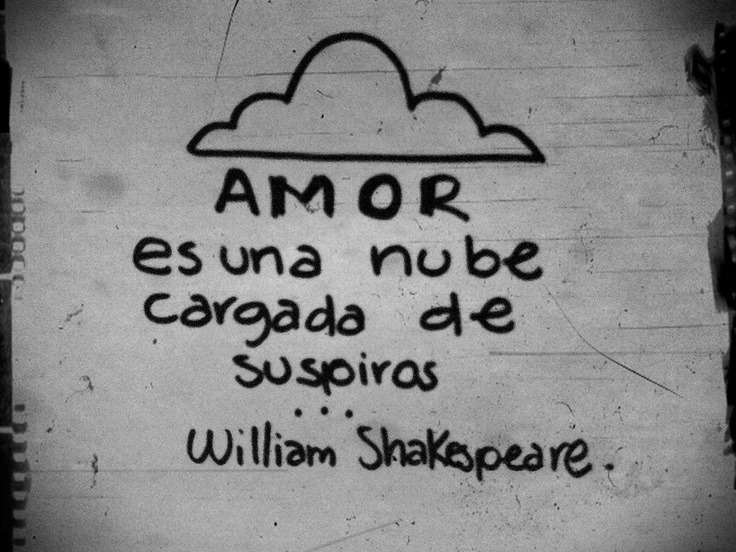 AMOR
es una nube
cargada de
suspiros
...
William Shakespeare.